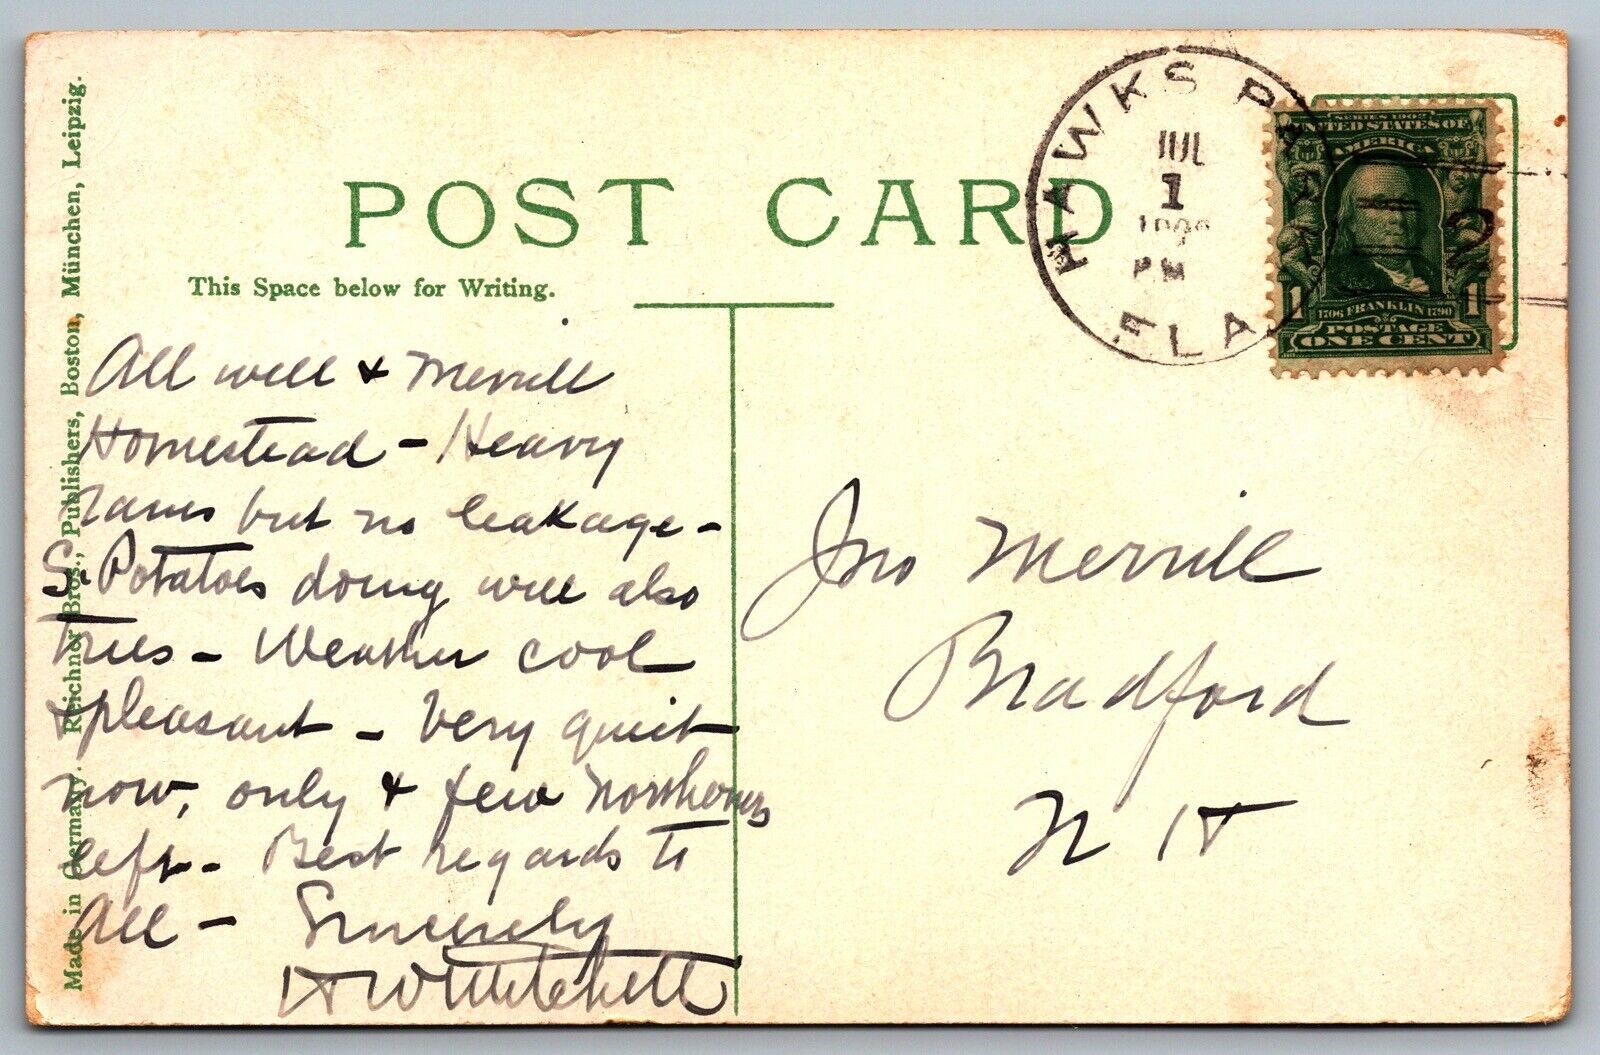 POST CARD
This Space below for Writing.
HAWKS PARK
JUL
1
PM
FLA
SERIES 1902
UNITED STATES OF
AMERICA
2
1 1
1706 FRANKLIN 1790
POSTAGE
ONE CENT
All well & Merrill
Homestead - Heavy
rains but no leakage -
S. Potatoes doing well also
trees - Weather cool
& pleasant - Very quiet
now, only & few Northerners
left - Best regards to
All - Sincerely
H W Mitchell
Jno Merrill
Bradford
N H
Made in Germany. Reichner Bros., Publishers, Boston, München, Leipzig.